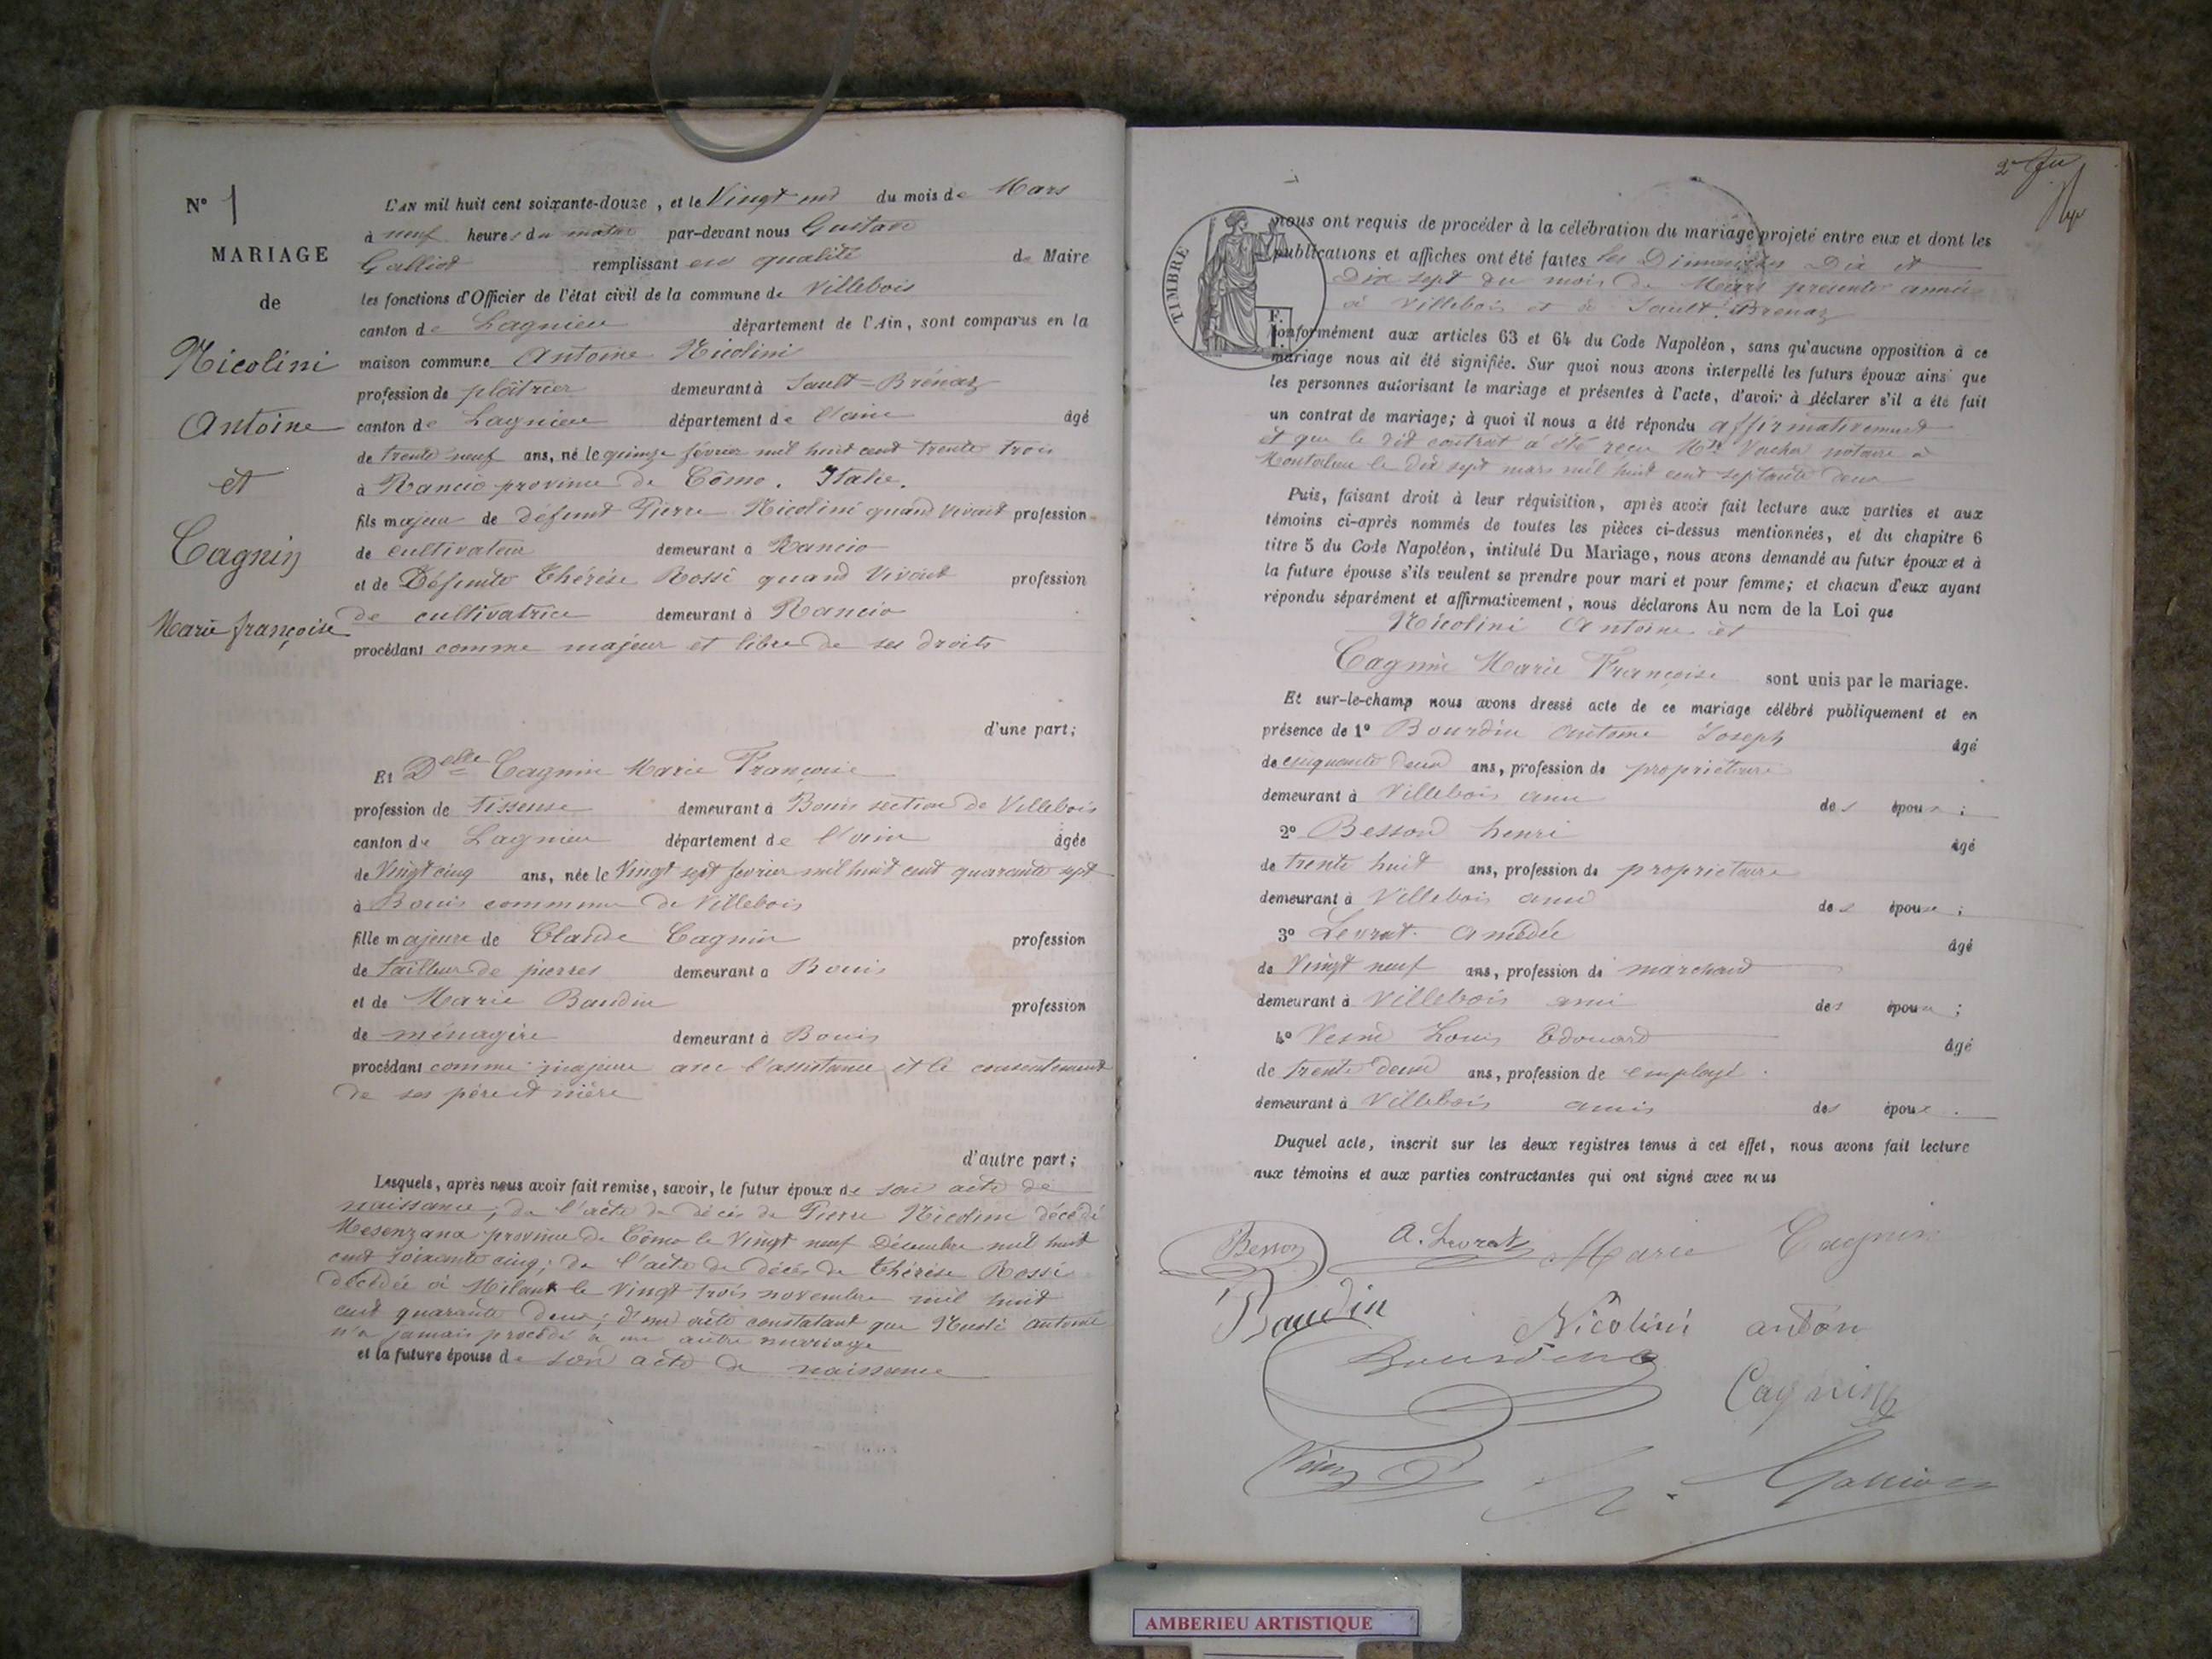 N° 1
MARIAGE
de
Nicolini
Antoine
et
Cagnin
Marie françoise
L'AN mil huit cent soixante-douze, et le Vingt un du mois de Mars
à neuf heures du matin par-devant nous Gustave
Galliod remplissant en qualité de Maire
les fonctions d'Officier de l'état civil de la commune de Villebois
canton de Lagnieu département de l'Ain, sont comparus en la
maison commune Antoine Nicolini
profession de plâtrier demeurant à Sault-Brénaz
canton de Lagnieu département de l'ain âgé
de trente neuf ans, né le quinze février mil huit cent trente trois
à Rancio province de Cômo. Italie.
fils majeur de défunt Pierre Nicolini quand vivait profession
de cultivateur demeurant à Rancio
et de Défunte Thérèse Rossi quand vivait profession
de cultivatrice demeurant à Rancio
procédant comme majeur et libre de ses droits
d'une part;
Et Delle Cagnin Marie Françoise
profession de tisseuse demeurant à Bouis section de Villebois
canton de Lagnieu département de l'ain âgée
de Vingt cinq ans, née le Vingt sept fevrier mil huit cent quarante sept
à Bouis commune de Villebois
fille majeure de Claude Cagnin profession
de tailleur de pierres demeurant a Bouis
et de Marie Baudin profession
de ménagère demeurant à Bouis
procédant comme majeure avec l'assistance et le consentement
de ses père et mère
d'autre part;
Lesquels, après nous avoir fait remise, savoir, le futur époux de son acte de
naissance; de l'acte de décès de Pierre Nicolini décédé
Mesenzana province de Cômo le Vingt neuf Décembre mil huit
cent soixante cinq; de l'acte de décès de Thérèse Rossi
décédée à Milan le Vingt trois novembre mil huit
cent quarante deux; d'un acte constatant que Antoine
n'a jamais procédé à un autre mariage
et la future épouse de son acte de naissance
2e
TIMBRE
nous ont requis de procéder à la célébration du mariage projeté entre eux et dont les
publications et affiches ont été faites les Dimanches Dix et
Dix sept du mois de Mars présente année
à Villebois et à Sault-Brenaz
conformément aux articles 63 et 64 du Code Napoléon, sans qu'aucune opposition à ce
mariage nous ait été signifiée. Sur quoi nous avons interpellé les futurs époux ainsi que
les personnes autorisant le mariage et présentes à l'acte, d'avoir à déclarer s'il a été fait
un contrat de mariage; à quoi il nous a été répondu affirmativement
et que le dit contrat a été reçu Me Vacher notaire à
le dix sept mars mil huit cent septante deux
Puis, faisant droit à leur réquisition, après avoir fait lecture aux parties et aux
témoins ci-après nommés de toutes les pièces ci-dessus mentionnées, et du chapitre 6
titre 5 du Code Napoléon, intitulé Du Mariage, nous avons demandé au futur époux et à
la future épouse s'ils veulent se prendre pour mari et pour femme; et chacun d'eux ayant
répondu séparément et affirmativement, nous déclarons Au nom de la Loi que
Nicolini Antoine et
Cagnin Marie Françoise sont unis par le mariage.
Et sur-le-champ nous avons dressé acte de ce mariage célébré publiquement et en
présence de 1° Bourdin Antoine Joseph âgé
de cinquante deux ans, profession de propriétaire
demeurant à Villebois ami des époux;
2° Besson henri âgé
de trente huit ans, profession de propriétaire
demeurant à Villebois ami des époux;
3° Levrat Amédée âgé
de Vingt neuf ans, profession de marchand
demeurant à Villebois ami des époux;
4° Louis Edouard âgé
de trente deux ans, profession de employé
demeurant à Villebois amis des époux.
Duquel acte, inscrit sur les deux registres tenus à cet effet, nous avons fait lecture
aux témoins et aux parties contractantes qui ont signé avec nous
Besson A. Levrat Marie Cagnin
Baudin Nicolini anton
Bourdin Cagnin
Galliod
AMBERIEU ARTISTIQUE